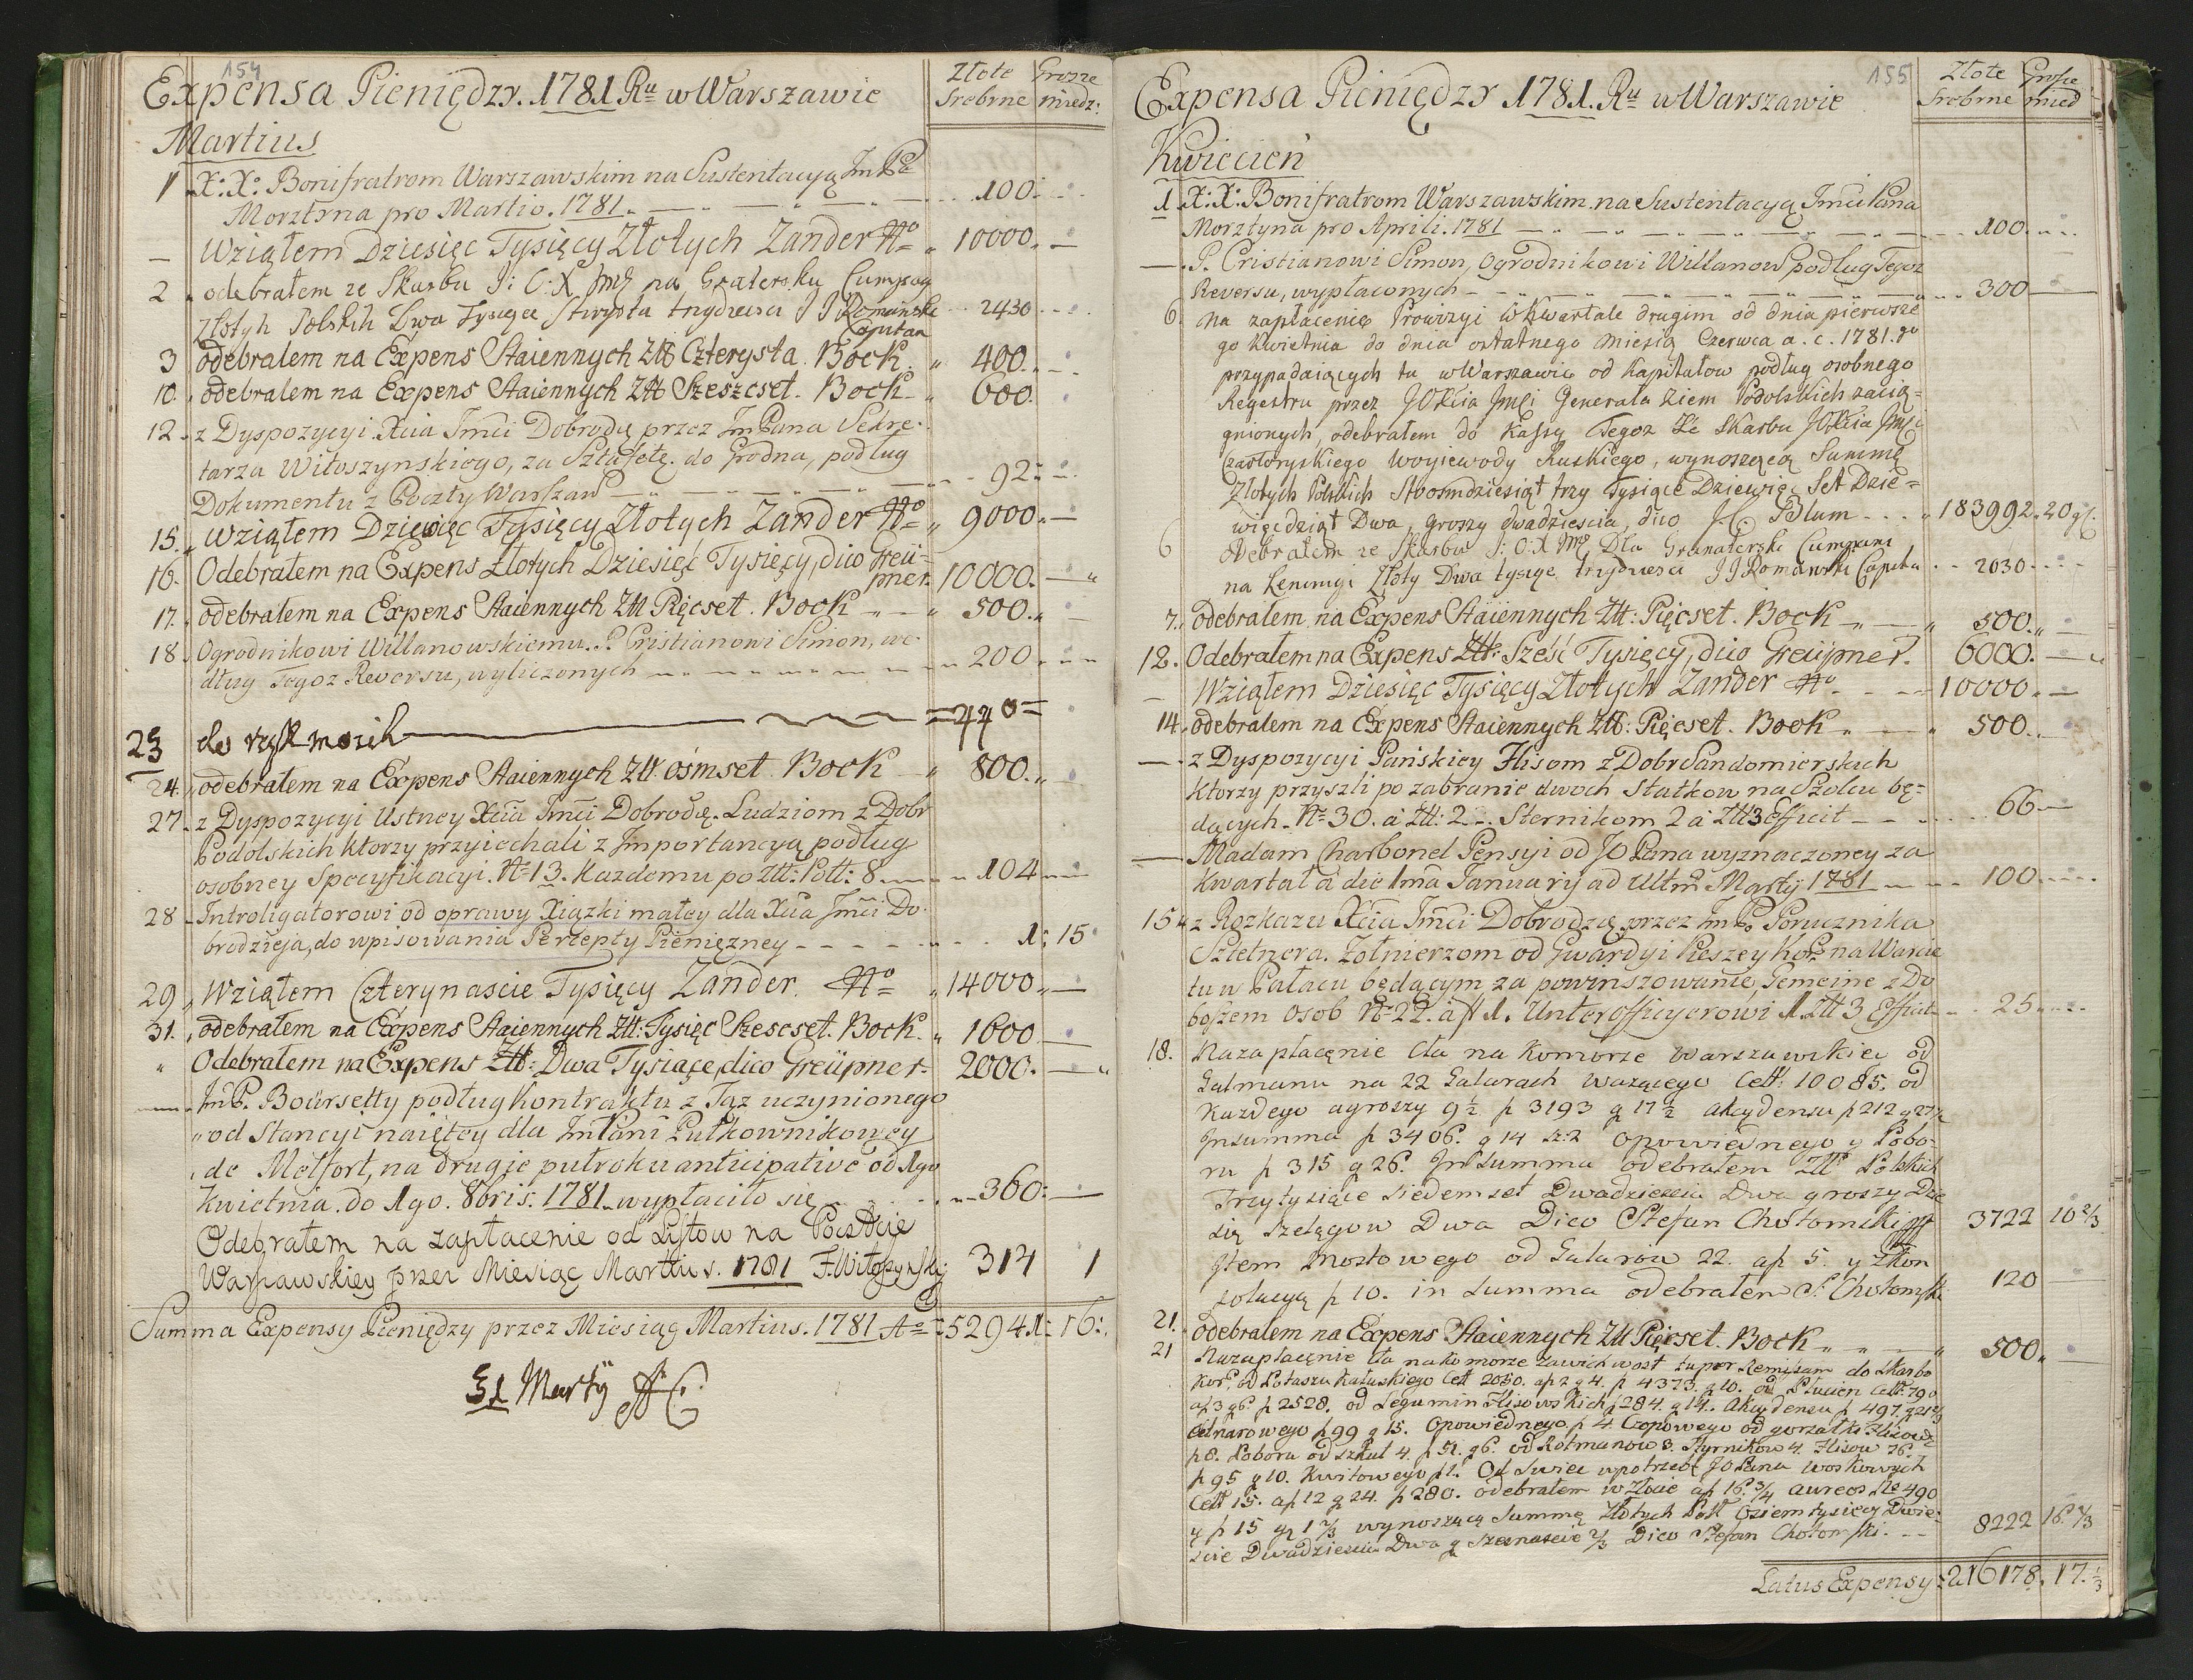 154
Expensa Pieniędzy. 1781. Ru w Warszawie
Złote Grosze
Srebrne miedz:
Martius
1 X: X: Bonifratrom Warszawskim na Sustentacyą Im Pa
Morztyna pro Martio. 1781. 100.
Wziąłem Dziesięc Tysięcy Złotych Zander 10000.
2 odebrałem ze Skarbu J: O: X Jmci na Graterską Cumpag
Złotyh Polskih Dwa Tysiące Strysta trydziesci J J Romanski 2430
Capitan
3 odebralem na Expens Staiennych Ztt Czterysta. Bock. 400.
10. odebralem na Expens Staiennych Ztt Szeszcset. Bock 600.
12. z Dyspozycyi Xcia Jmci Dobrodz przez Jm Pana Sekre-
tarza Witoszynskiego, za Sztafetę do Grodna, podług
Dokumentu z Poczty Warszaw 92:
15. Wziąłem Dziewięc Tysięcy Złotych Zander 9000.
16. Odebrałem na Expens Złotych Dziesięć Tysięcy, dico Greü-
pner. 10000.
17. odebrałem na Expens Staiennych Ztt Pięcset. Bock 500.
18. Ogrodnikowi Willanowskiemu. P. Cristianowi Simon, we-
dług Tegoz Reversu, wyliczonych 200
23 do rąk moich =440=
24. odebrałem na Expens Staiennych Ztt. ośmset. Bock 800.
27. z Dyspozycyi Ustney Xcia Jmci Dobrodz. Ludziom z Dobr
Podolskich ktorzy przyiechali z Importancyą podług
osobney Specyfikacyi. No 13. Kazdemu po Ztt: Poll: 8. 104
28 Introligatorowi od oprawy Xiązki małey dla Xcia Jmci Do-
brodzieja, do wpisowania Percepty Pieniężney 1: 15
29 Wziąłem Czterynascie Tysięcy Zander. 14000
31. odebrałem na Expens Staiennych Ztt: Tysięc Szescset. Bock. 1600
" Odebrałem na Expens Ztt: Dwa Tysiące, dico Greüpner. 2000.
Jm P. Boürsetty podług Kontraktu z Tąz uczynionego
od Stancyi naiętey dla Jm Pani Pułkownikowey
de Melfort, na drugie pułroku anticipative od 1go
Kwietnia. do 1go. 8bris. 1781 wypłaciło się 360:
Odebrałem na zapłacenie od Listow na Poczcie
Warszawskiey przez Miesiąc Martius. 1781 F. Witoszynski 314 1
Summa Expensy Pieniędzy przez Miesiąc Martius. 1781 Ao 52941: 16:
31 Marty AC
155
Expensa Pieniędzy 1781. Ru w Warszawie
Złote Grosze
Srebrne mied
Kwiecień
1. X: X: Bonifratrom Warszawskim na Sustentacyą Jmci Pana
Morztyna pro Aprili. 1781 100
P. Cristianowi Simon, Ogrodnikowi Willanow podług Tegoz
Reversu, wypłaconych 300
6. na zapłacenie Prowizyi w Kwartale drugim od dnia pierwsze
go Kwietnia do dnia ostatnego Miesią Czerwca a. c. 1781. go
przypadaiących tu w Warszawie od Kapitałow podług osobnego
Regestru przez JOXcia Jmci Generała Ziem Podolskich zacią=
gnionych, odebrałem do Kassy Tegoz ze Skarbu JOXcia Jmci
Czartoryskiego Woyiewody Ruskiego, wynoszącą Summę
Złotych Polskich Sto osmdziesiąt trzy Tysiące Dziewięć Set Dzie=
więcdziąt Dwa, groszy dwadziescia, dico J. C. Blum 183992. 20 gl.
6 Odebrałem ze Skarbu J: O: X Mci Dla Granaterski Cumpani
na Lenungi Złoty Dwa tysiąe trydziesci J J Romanski Capitan 2030
7. odebrałem na Expens Staiennych Ztt: Pięcset. Bock 500.
12. Odebrałem na Expens Ztt: Sześć Tysięcy, dico Greüpner. 6000.
Wziąłem Dziesięc Tysięcy Złotych Zander 10000
14. odebralem na Expens Staiennych Ztt: Pięcset. Bock 500.
z Dyspozycyi Pańskiey Flisom z Dobr Sandomierskich
ktorzy przyszli po zabranie dwoch Statkow na Szolcu bę=
dących. No 30. a Ztt: 2. Sternikom 2 a Ztt 3 Efficit 66
Madam Charbonel Pensyi od JO Pana wyznaczoney za
Kwartał a die 1ma January ad Ultm Marty 1781 100
15 z Rozkazu Xcia Jmci Dobrodzie, przez Jm P. Porucznika
Szletnera. Zołnierzom od Gwardyi Pieszey Kor. na Warcie
tu w Pałacu będącym za powinszowanie, Gemeine z Do
boszem Osob No 22. a 1. Unterofficyerowi 1. Ztt 3 Efficit 25
18. Na zapłacęnie Cła na Komorze Warszawskiey od
Galmanu na 22 Galarach wazącego Cett: 10085. od
Kazdego a groszy 9½ f 3193 g 17½ Akcydensu f 212 g 27
Insumma f 3406. g 14 sz: 2 opowiednego y Pobo-
ru f 315 g 26. Insumma odebrałem Ztt Polskich
Trzytysiące siedemset Dwadziescia Dwa groszy Dzie
sią szelągow Dwa Dico Stefan Chotomski 3722 10 2/3
Item Mostowego od Galarow 22. a f 5. y Zkon
solacyą f 10. in Summa odebrałem S. Chotomski 120
21. odebralem na Expens Staiennych Ztt Pięcset. Bock 500.
21 Na zapłacęnie Cła na Komorze Zawichwost tu per Remissam do Skarbo
Kor. od Potaszu Kałuskiego Cett 2050. a f 2 g 4. f 4373. g 10. od Płucien Cett: 790
a f 3 g 6 f 2528. od Legumin Flisowskich f 284. g 14. Akcydensu f 497. g 21 2/3
Celnarowego f 99 g 15. Opowiednego f 4 Czopowego od gorzałki Flisows
f 8. Poboru od szkut 4. f 51. g 6. od Rotmanow 3. Styrnikow 4. Flisow 76.
f 95 g 10. Kwitowego f 1. Od Swiec w potrzeb JO Pana Woskowych
Cett 15. a f 12 g 24. f 280. odebrałem w Złocie a f 16. 3/4 aureos No 490
y f 15 g 1 2/3 wynoszącą Summę Złotych Pol Osiem tysięcy Dwie-
scie Dwadziescia Dwa g szesnascie 2/3 Dico Stefan Chotomski. 8222 16. 2/3
Latus Expensy: 216178. 17. 1/3